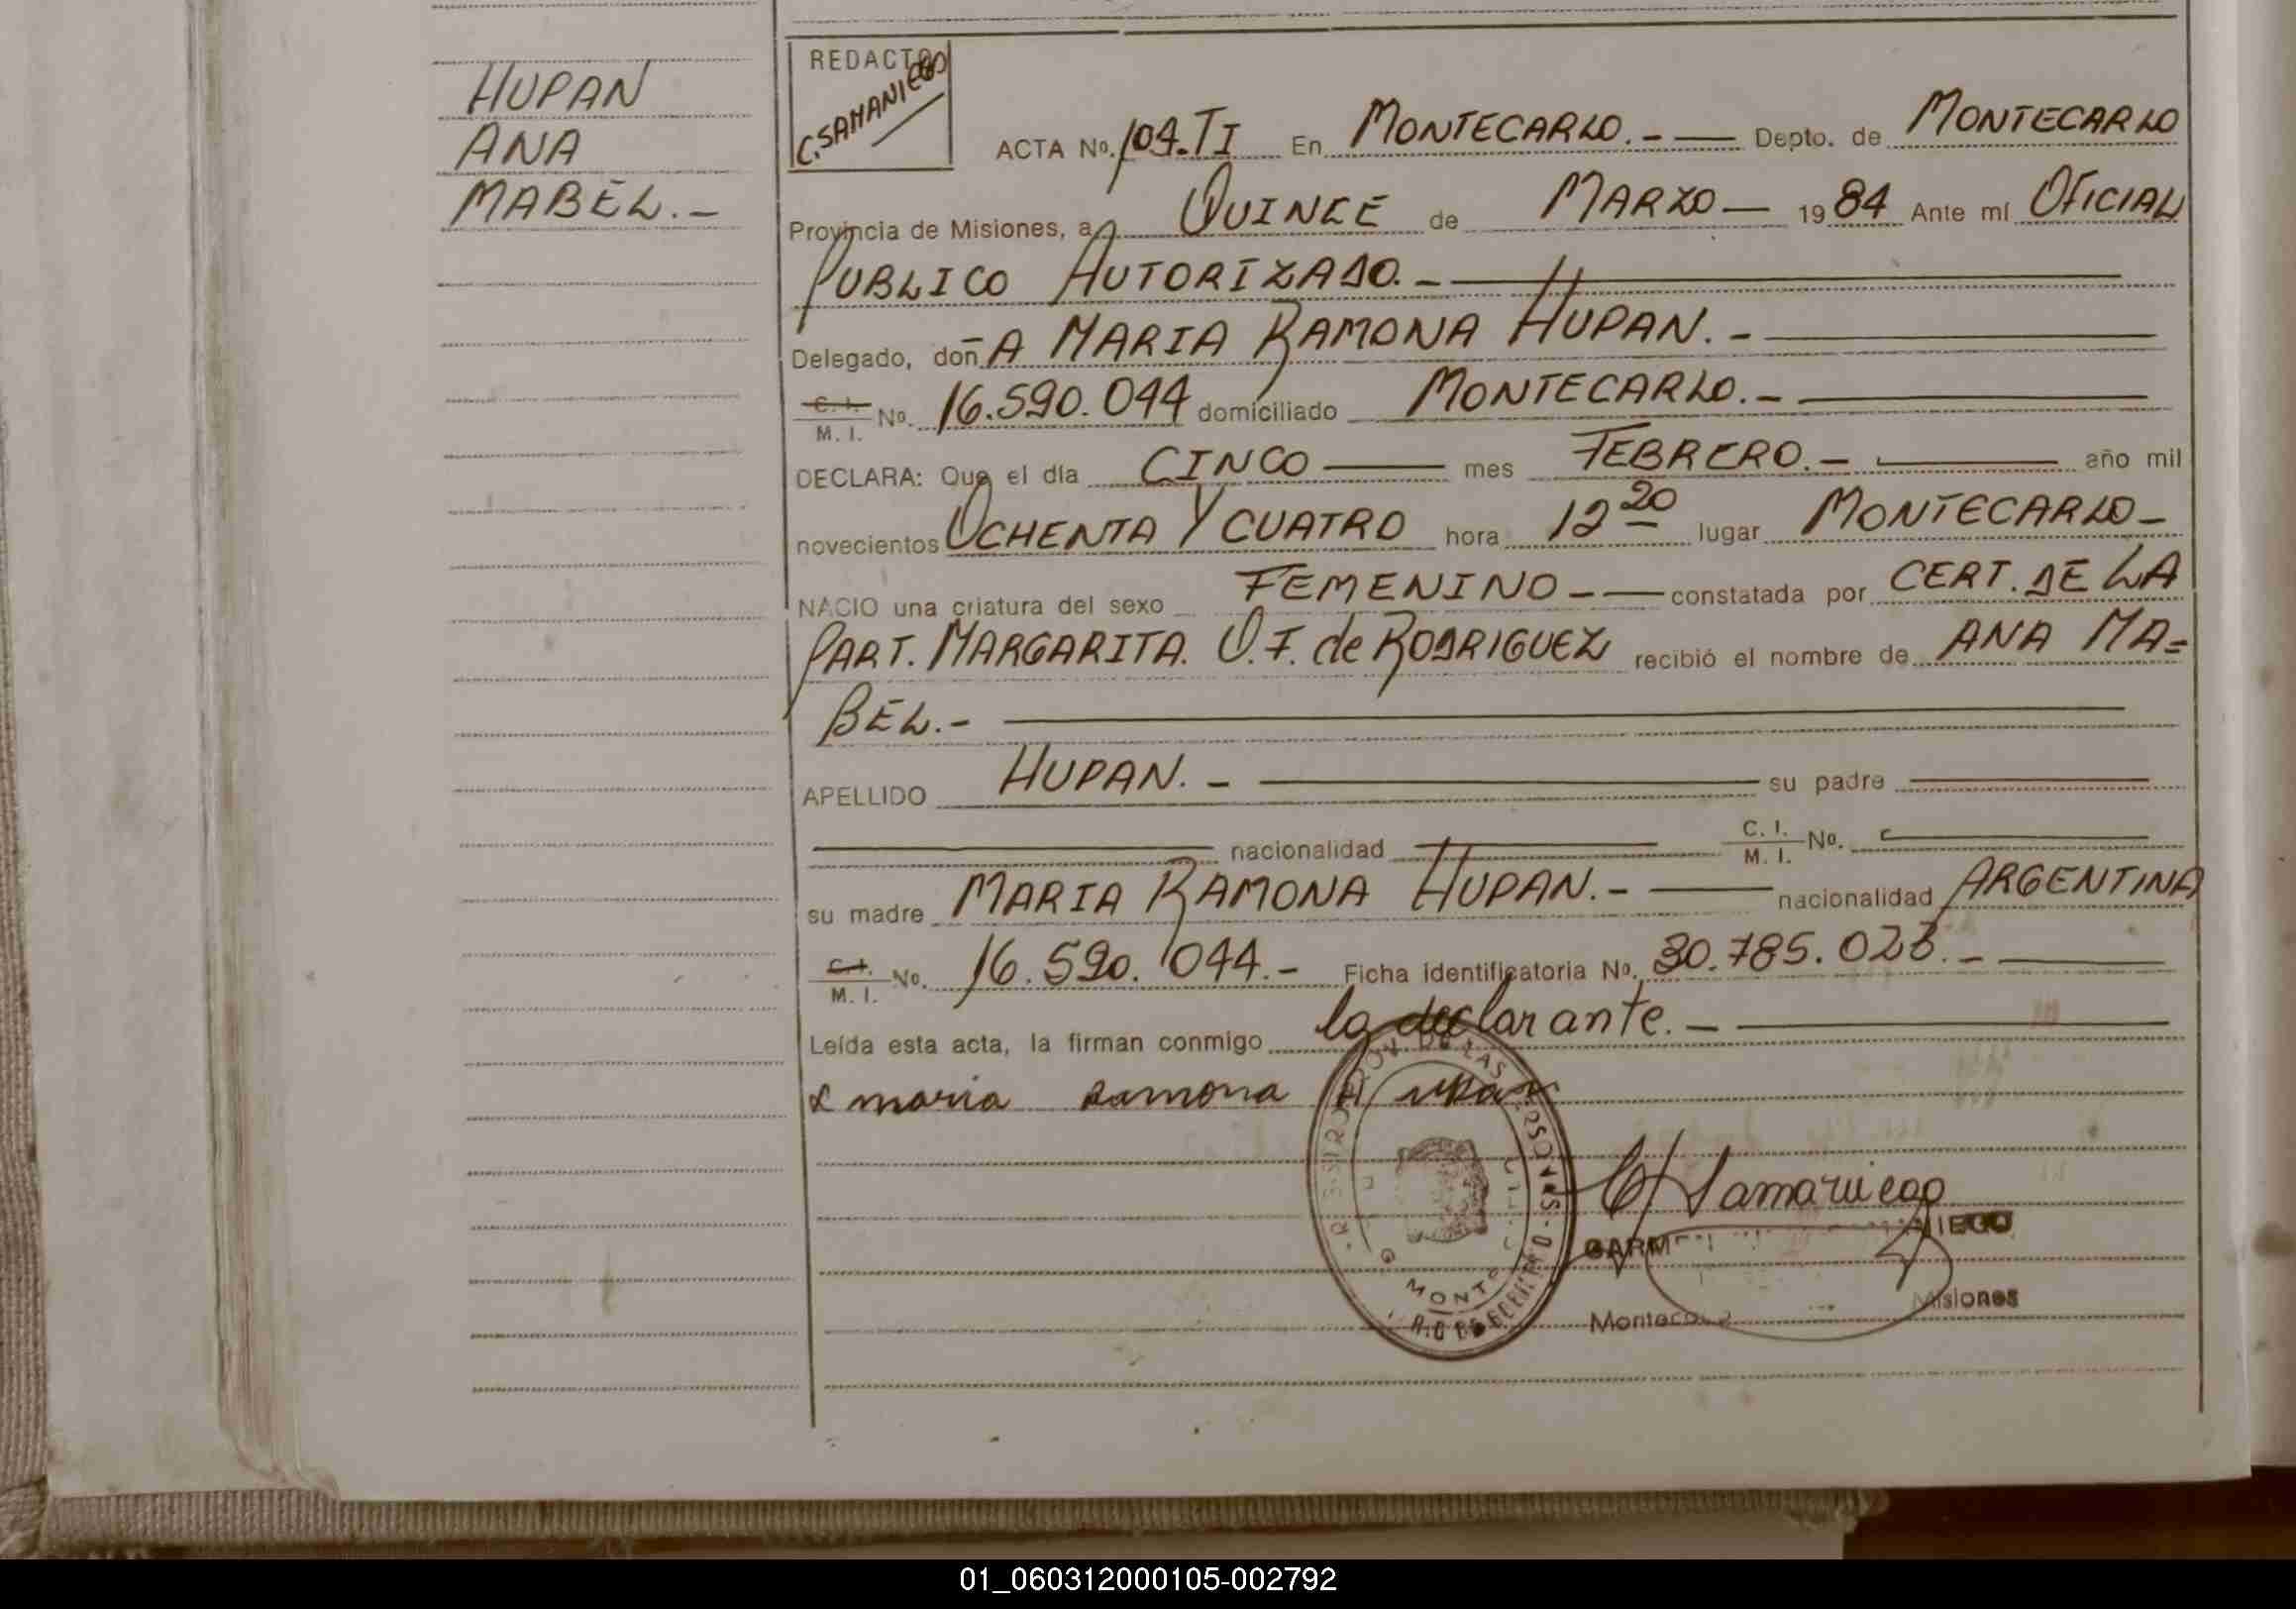 HUPAN
ANA
MABEL.-
REDACTO
C. SAMANIEGO
ACTA No. 109-TI En MONTECARLO.- Depto. de MONTECARLO
Provincia de Misiones, a QUINCE de MARZO 1984 Ante mí OFICIAL
PUBLICO AUTORIZADO.-
Delegado, doñA MARIA RAMONA HUPAN.-
C. I. / M. I. No. 16.590.044 domiciliado MONTECARLO.-
DECLARA: Que el día CINCO mes FEBRERO.- año mil
novecientos OCHENTA Y CUATRO hora 12 20 lugar MONTECARLO-
NACIO una criatura del sexo FEMENINO constatada por CERT. DE LA
PART. MARGARITA. O. F. de RODRIGUEZ recibió el nombre de ANA MA=
BEL.-
APELLIDO HUPAN.- su padre
nacionalidad C. I. / M. I. No.
su madre MARIA RAMONA HUPAN.- nacionalidad ARGENTINA
C. I. / M. I. No. 16.590.044.- Ficha identificatoria No. 30.785.023.-
Leída esta acta, la firman conmigo la declarante.-
maria Ramona Hupan
C Samaniego
Misiones
01_060312000105-002792